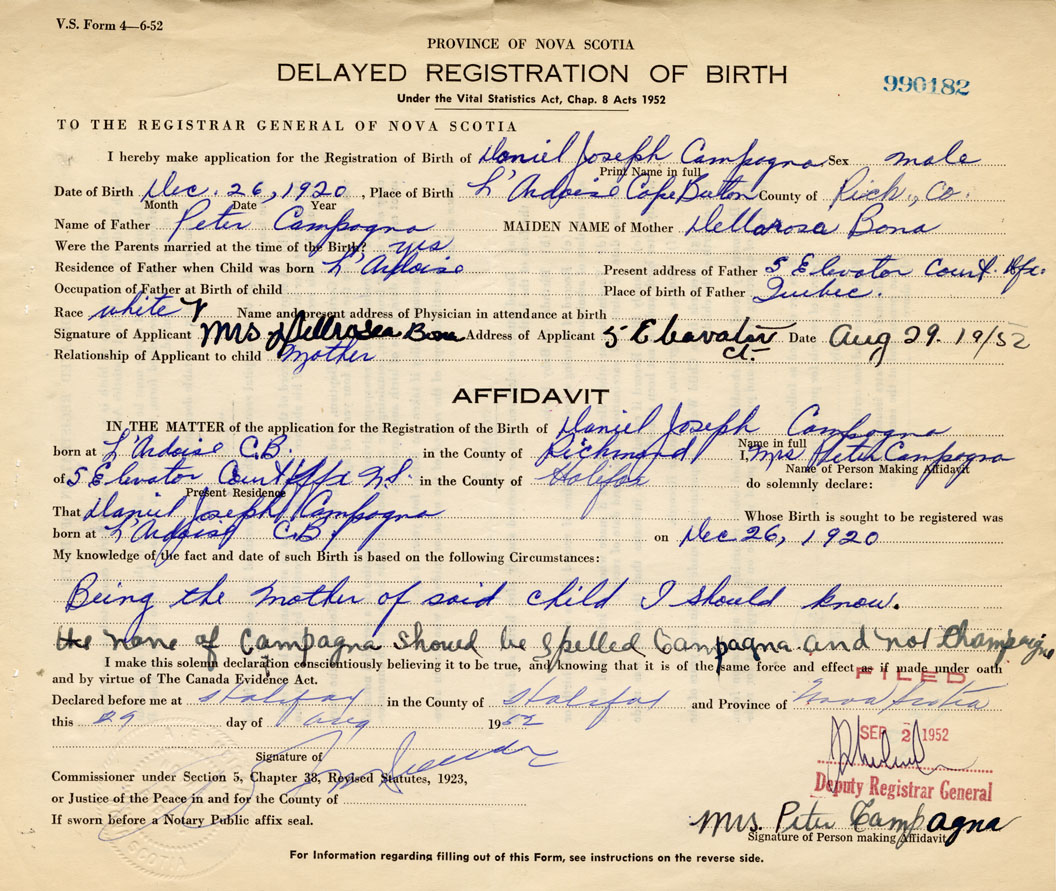 V.S. Form 4—6-52
PROVINCE OF NOVA SCOTIA
DELAYED REGISTRATION OF BIRTH
990182
Under the Vital Statistics Act, Chap. 8 Acts 1952
TO THE REGISTRAR GENERAL OF NOVA SCOTIA
I hereby make application for the Registration of Birth of Daniel Joseph Campagna Sex male
Print Name in full
Date of Birth Dec. 26, 1920, Place of Birth L'Ardoise Cape Breton County of Rich., Co.
Month Date Year
Name of Father Peter Campagna MAIDEN NAME of Mother Dellarosa Bona
Were the Parents married at the time of the Birth? yes
Residence of Father when Child was born L'Ardoise Present address of Father 5 Elevator Court. Hfx.
Occupation of Father at Birth of child Place of birth of Father Quebec.
Race white Name and present address of Physician in attendance at birth
Signature of Applicant Mrs Dellrosea Bona Address of Applicant 5 Eleavator Ct. Date Aug 29. 19/52
Relationship of Applicant to child Mother
AFFIDAVIT
IN THE MATTER of the application for the Registration of the Birth of Daniel Joseph Campagna
Name in full
born at L'Ardoise C.B. in the County of Richmond I, Mrs Peter Campagna
Name of Person Making Affidavit
of 5 Elevator Court Hfx N.S. in the County of Halifax do solemnly declare:
Present Residence
That Daniel Joseph Campagna Whose Birth is sought to be registered was
born at L'Ardoise C.B. on Dec 26, 1920
My knowledge of the fact and date of such Birth is based on the following Circumstances:
Being the Mother of said child I should know.
the name of Campagna should be spelled Campagna and not Champaign
I make this solemn declaration conscientiously believing it to be true, and knowing that it is of the same force and effect as if made under oath
and by virtue of The Canada Evidence Act.
FILED
Declared before me at Halifax in the County of Halifax and Province of Nova Scotia
this 29 day of Aug 1952
SEP 2 1952
Signature of
Commissioner under Section 5, Chapter 38, Revised Statutes, 1923,
Deputy Registrar General
or Justice of the Peace in and for the County of
If sworn before a Notary Public affix seal.
Mrs. Peter Campagna
Signature of Person making Affidavit
For Information regarding filling out of this Form, see instructions on the reverse side.